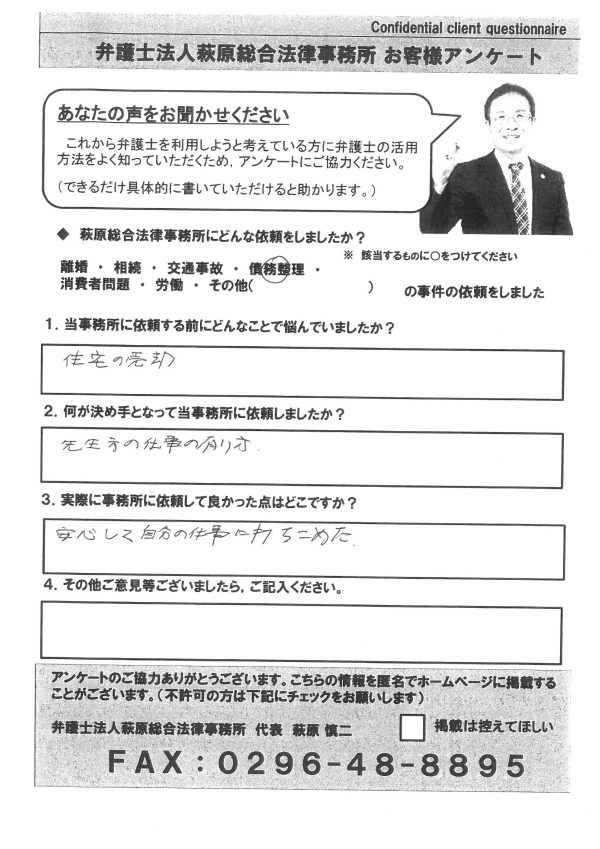 Confidential client questionnaire
弁護士法人萩原総合法律事務所 お客様アンケート
あなたの声をお聞かせください
これから弁護士を利用しようと考えている方に弁護士の活用
方法をよく知っていただくため，アンケートにご協力ください。
（できるだけ具体的に書いていただけると助かります。）
◆ 萩原総合法律事務所にどんな依頼をしましたか？
※ 該当するものに○をつけてください
離婚 ・ 相続 ・ 交通事故 ・ 債務整理 ・
消費者問題 ・ 労働 ・ その他（ ） の事件の依頼をしました
1．当事務所に依頼する前にどんなことで悩んでいましたか？
住宅の売却
2．何が決め手となって当事務所に依頼しましたか？
先生方の仕事の有り方.
3．実際に事務所に依頼して良かった点はどこですか？
安心して自分の仕事に打ちこめた.
4．その他ご意見等ございましたら，ご記入ください。
アンケートのご協力ありがとうございます。こちらの情報を匿名でホームページに掲載する
ことがございます。（不許可の方は下記にチェックをお願いします）
弁護士法人萩原総合法律事務所 代表 萩原 慎二 掲載は控えてほしい
FAX：0296-48-8895